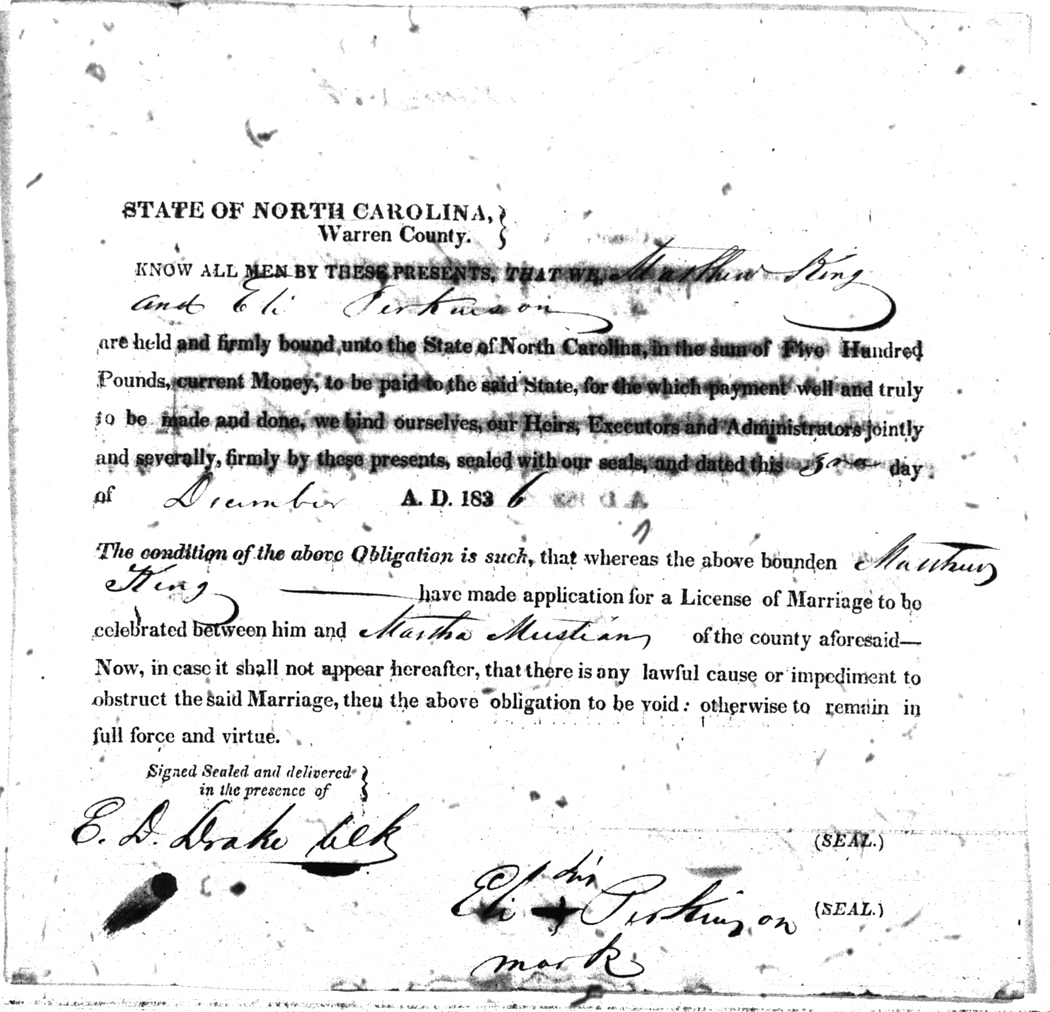 STATE OF NORTH CAROLINA,
Warren County.
KNOW ALL MEN BY THESE PRESENTS, THAT WE, Matthew King
and Eli Perkinson
are held and firmly bound unto the State of North Carolina, in the sum of Five Hundred
Pounds, current Money, to be paid to the said State, for the which payment well and truly
to be made and done, we bind ourselves, our Heirs, Executors and Administrators jointly
and severally, firmly by these presents, sealed with our seals, and dated this 3rd day
of December A. D. 1836
The condition of the above Obligation is such, that whereas the above bounden Matthew
King have made application for a License of Marriage to be
celebrated between him and Martha Mustian of the county aforesaid—
Now, in case it shall not appear hereafter, that there is any lawful cause or impediment to
obstruct the said Marriage, then the above obligation to be void: otherwise to remain in
full force and virtue.
Signed Sealed and delivered
in the presence of
E. D. Drake Clk
(SEAL.)
his
Eli + Perkinson (SEAL.)
mark